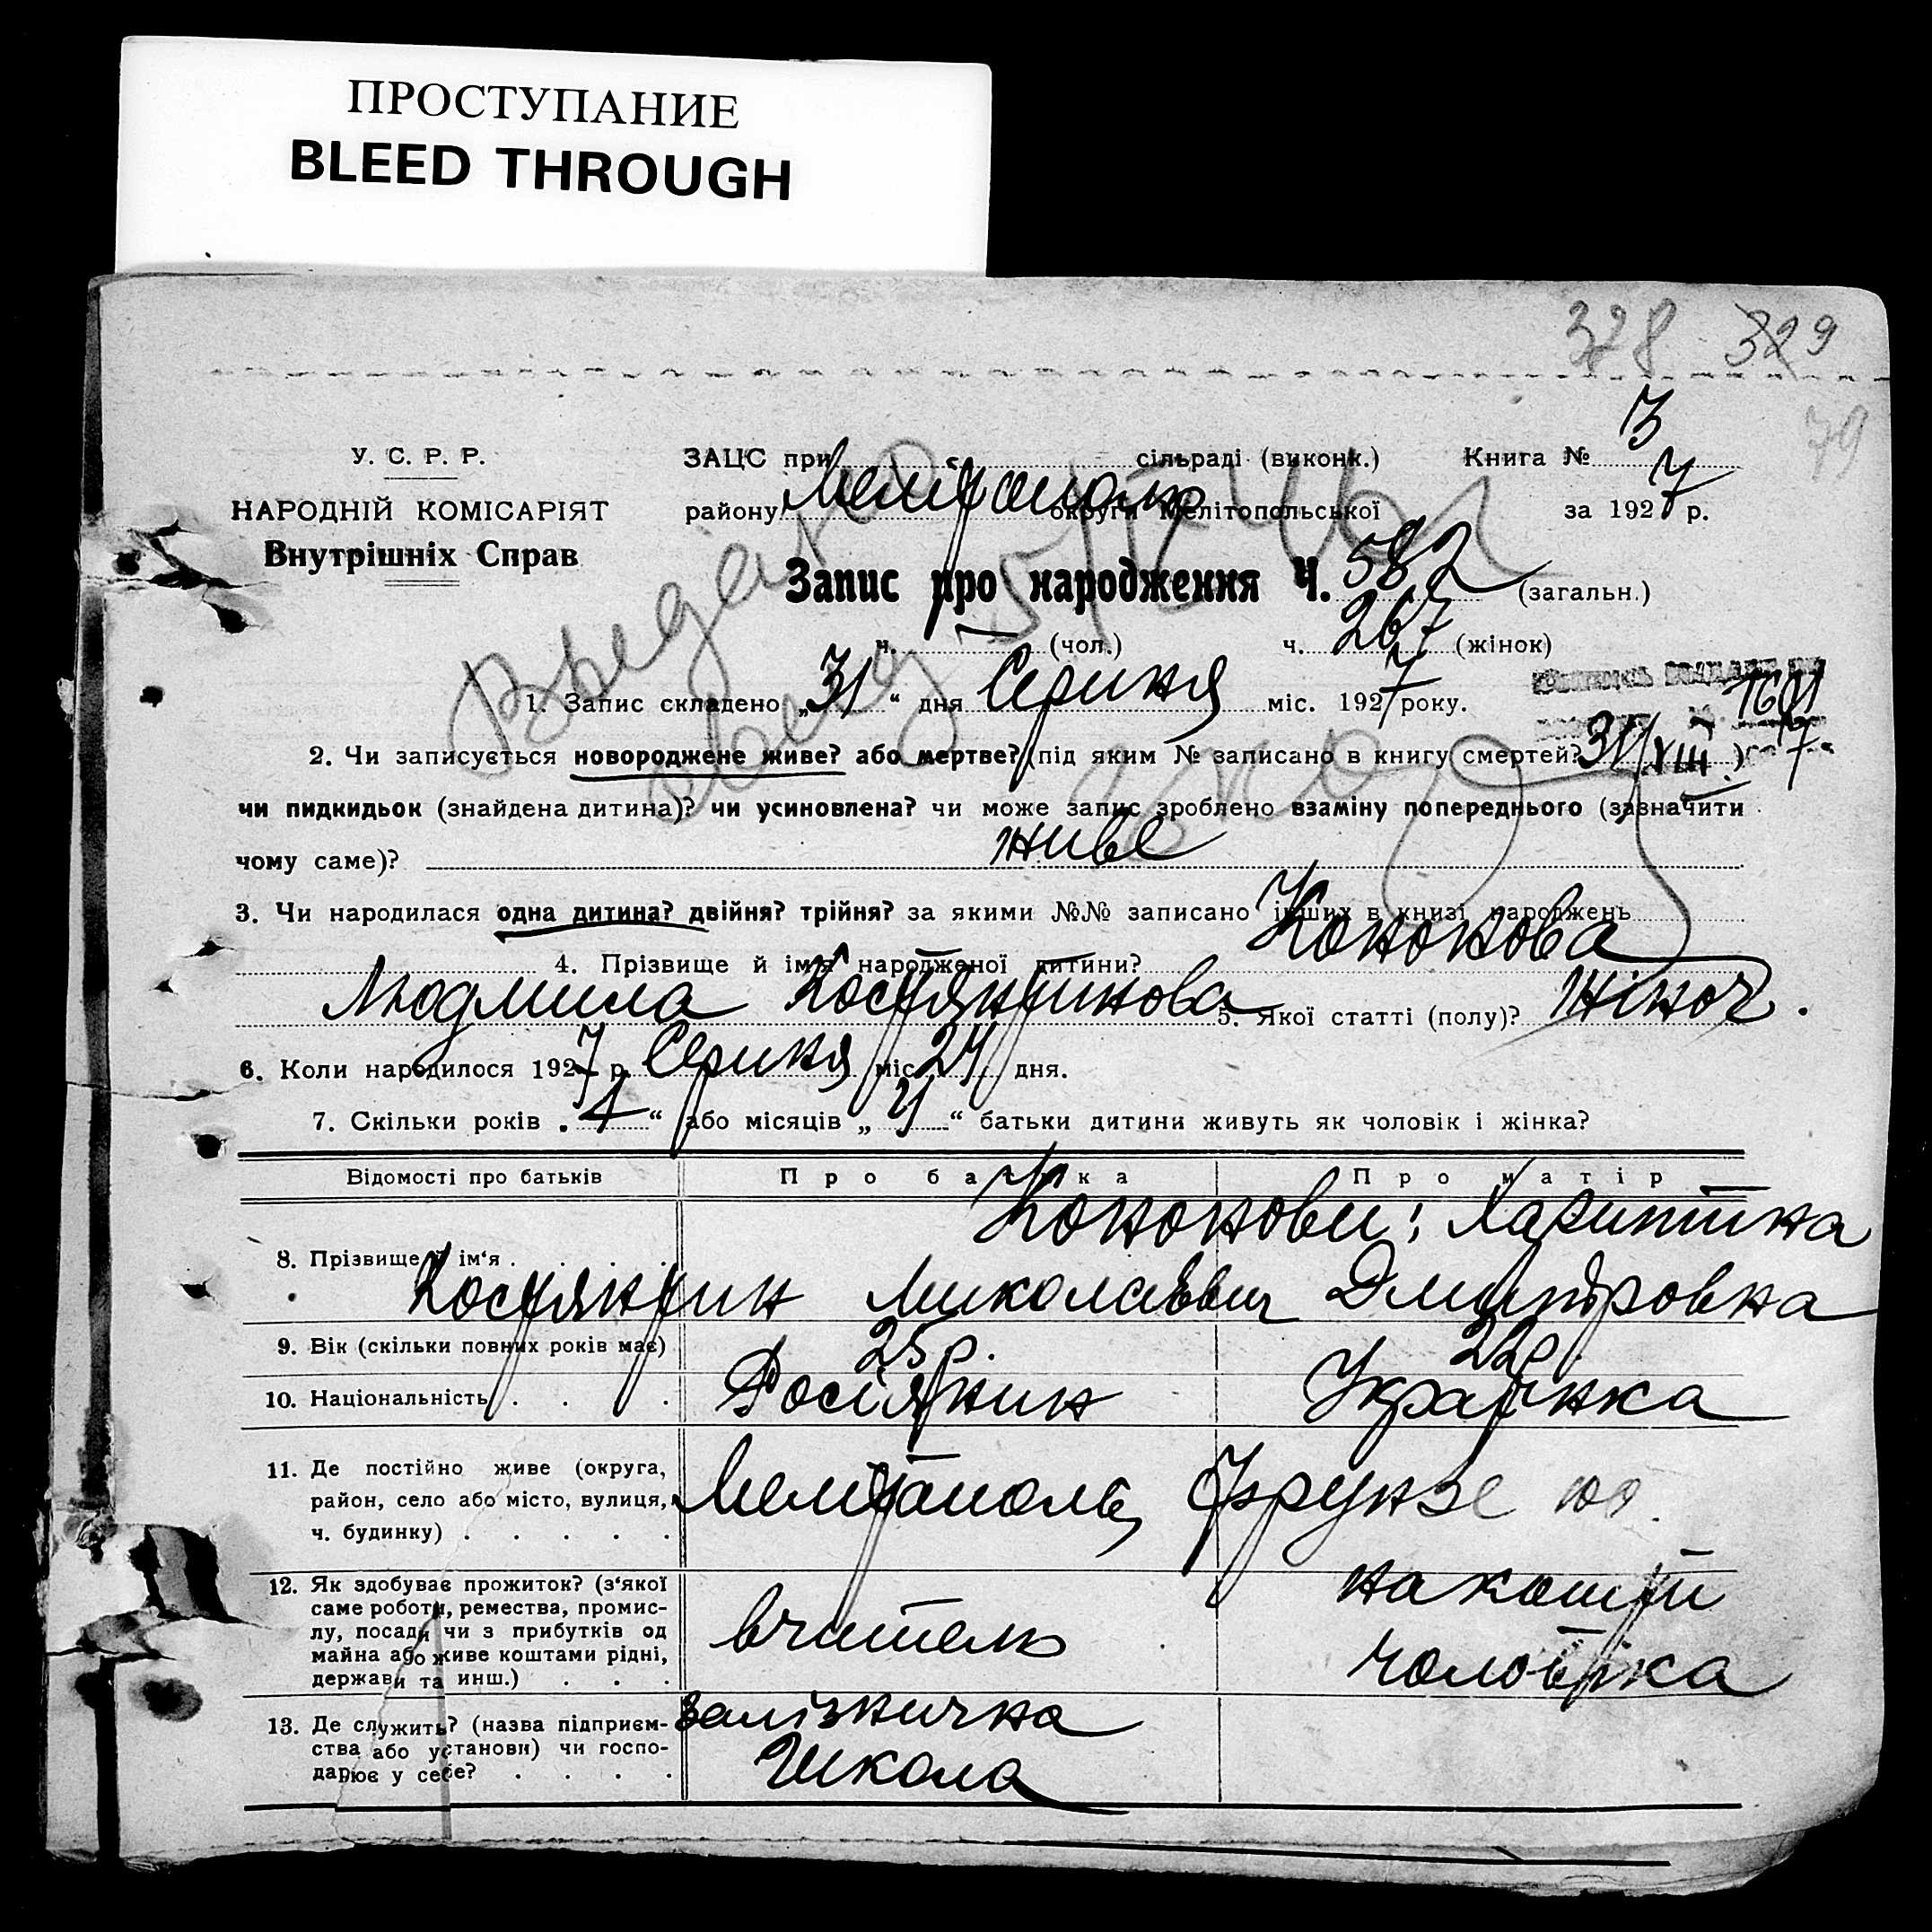 ПРОСТУПАНИЕ
BLEED THROUGH
328 329
79
У. С. Р. Р.
НАРОДНІЙ КОМІСАРІЯТ
Внутрішніх Справ
ЗАЦС при сільраді (виконк.) Книга № 3
району Мелітополь округи Мелітопольської за 1927 р.
Запис про народження Ч. 582 (загальн.)
ч. — (чол.) ч. 267 (жінок)
1. Запис складено „31“ дня Серпня міс. 1927 року.
2. Чи записується новороджене живе? або мертве? (під яким № записано в книгу смертей? )
чи пидкидьок (знайдена дитина)? чи усиновлена? чи може запис зроблено взаміну попереднього (зазначити
чому саме)? живе
3. Чи народилася одна дитина? двійня? трійня? за якими №№ записано інших в книзі народжень
4. Прізвище й ім'я народженої дитини? Кононова
Людмила Костянтинова 5. Якої статті (полу)? жіноч.
6. Коли народилося 1927 р. Серпня міс. 24 дня.
7. Скільки років „1“ або місяців „4“ батьки дитини живуть як чоловік і жінка?
Відомості про батьків Про батька Про матір
8. Прізвище й ім'я . . . . Кононови: Харитина
Костянтин Миколаєвич Дмитровна
9. Вік (скільки повних років має) 25 р. 22 р.
10. Національність . . . . Росіянин Українка
11. Де постійно живе (округа,
район, село або місто, вулиця,
ч. будинку) . . . . . Мелітополь, Фрунзе
12. Як здобуває прожиток? (з'якої
саме роботи, ремества, промис-
лу, посади чи з прибутків од
майна або живе коштами рідні,
держави та инш.) . . . вчитель на кошти
чоловіка
13. Де служить? (назва підприєм-
ства або установи) чи госпо-
дарює у себе? . . . . залізнична
школа